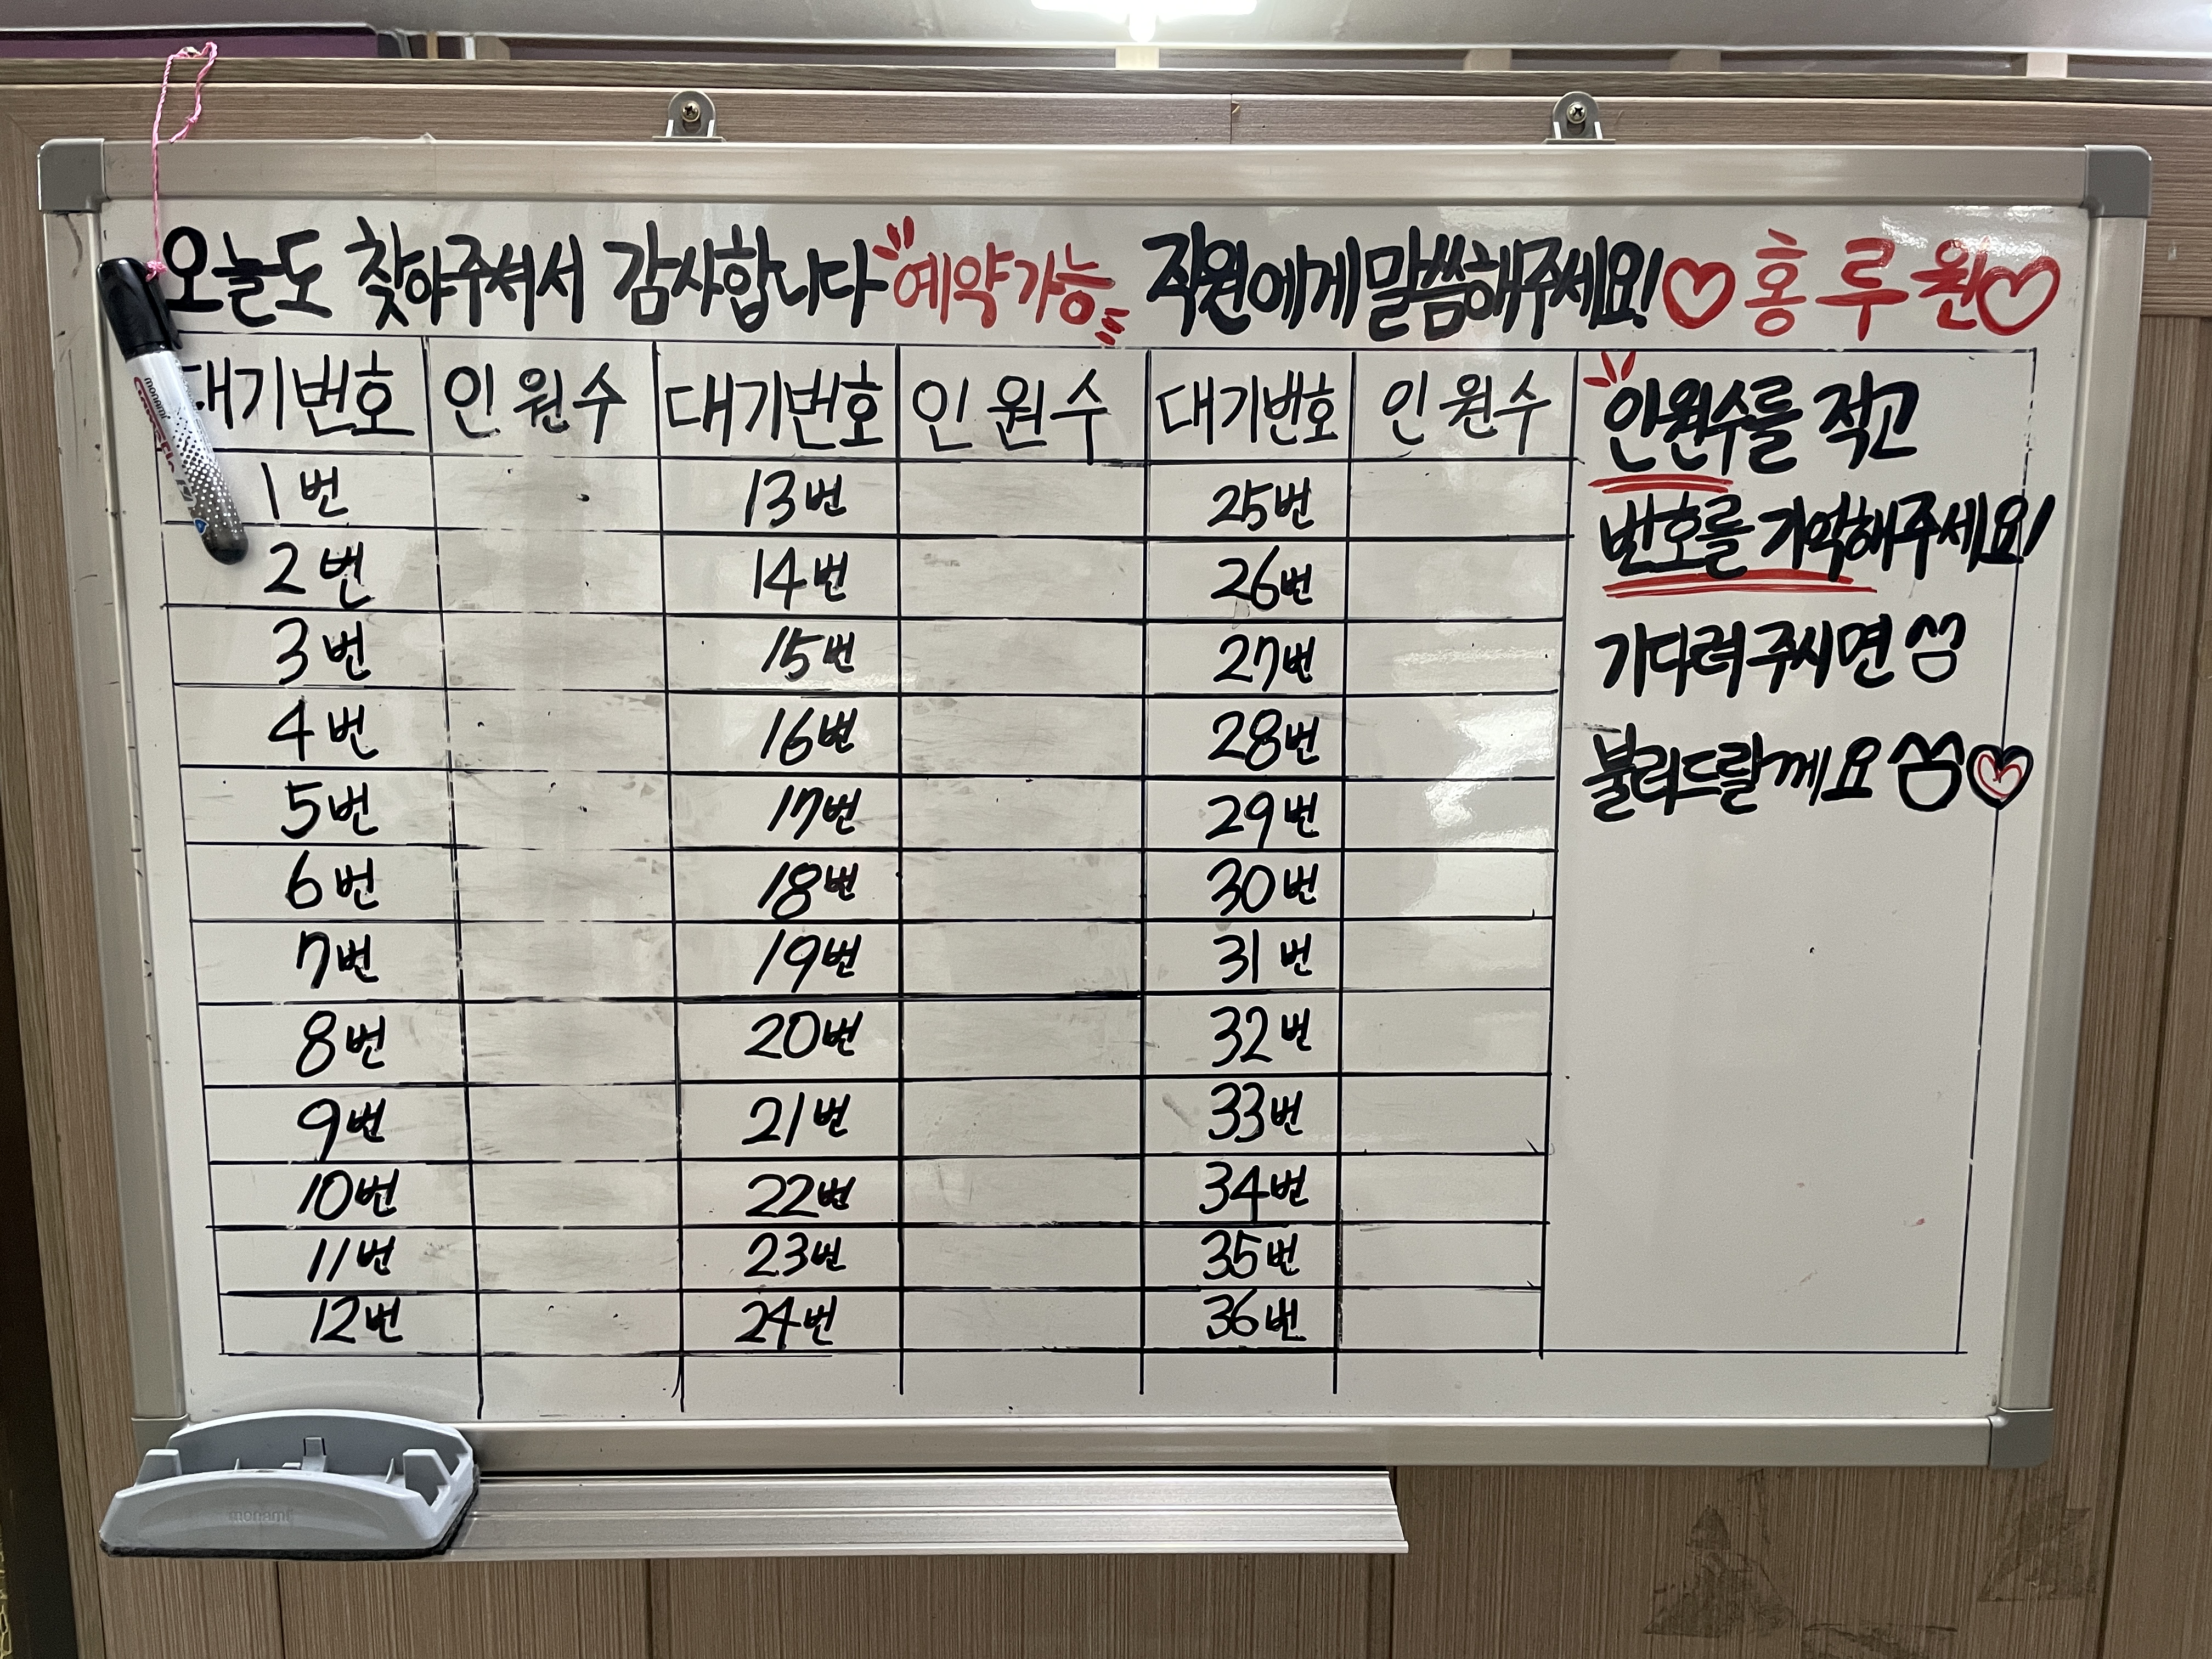 오늘도 찾아주셔서 감사합니다 예약가능 직원에게 말씀해주세요! ♡홍루원♡
대기번호 인원수 대기번호 인원수 대기번호 인원수
1번 13번 25번
2번 14번 26번
3번 15번 27번
4번 16번 28번
5번 17번 29번
6번 18번 30번
7번 19번 31번
8번 20번 32번
9번 21번 33번
10번 22번 34번
11번 23번 35번
12번 24번 36번
인원수를 적고
번호를 기억해주세요!
기다려주시면
불러드랄께요 ♡
monami
monami